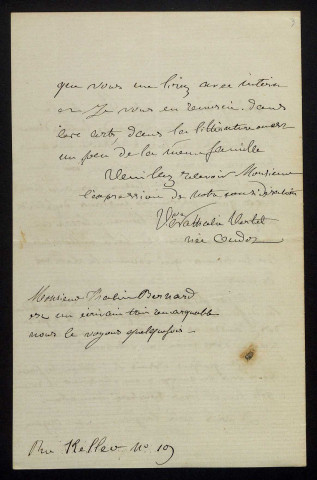 que vous me lirez avec intérêt
et je vous en remercie. dans
les arts, dans la littérature on est
un peu de la même famille
Veuillez recevoir Monsieur
l'expression de notre considération
Vve Nathalie
née
Monsieur Thalès Bernard
est un écrivain très remarquable
nous le voyons quelquefois -
Rue Keller No 10